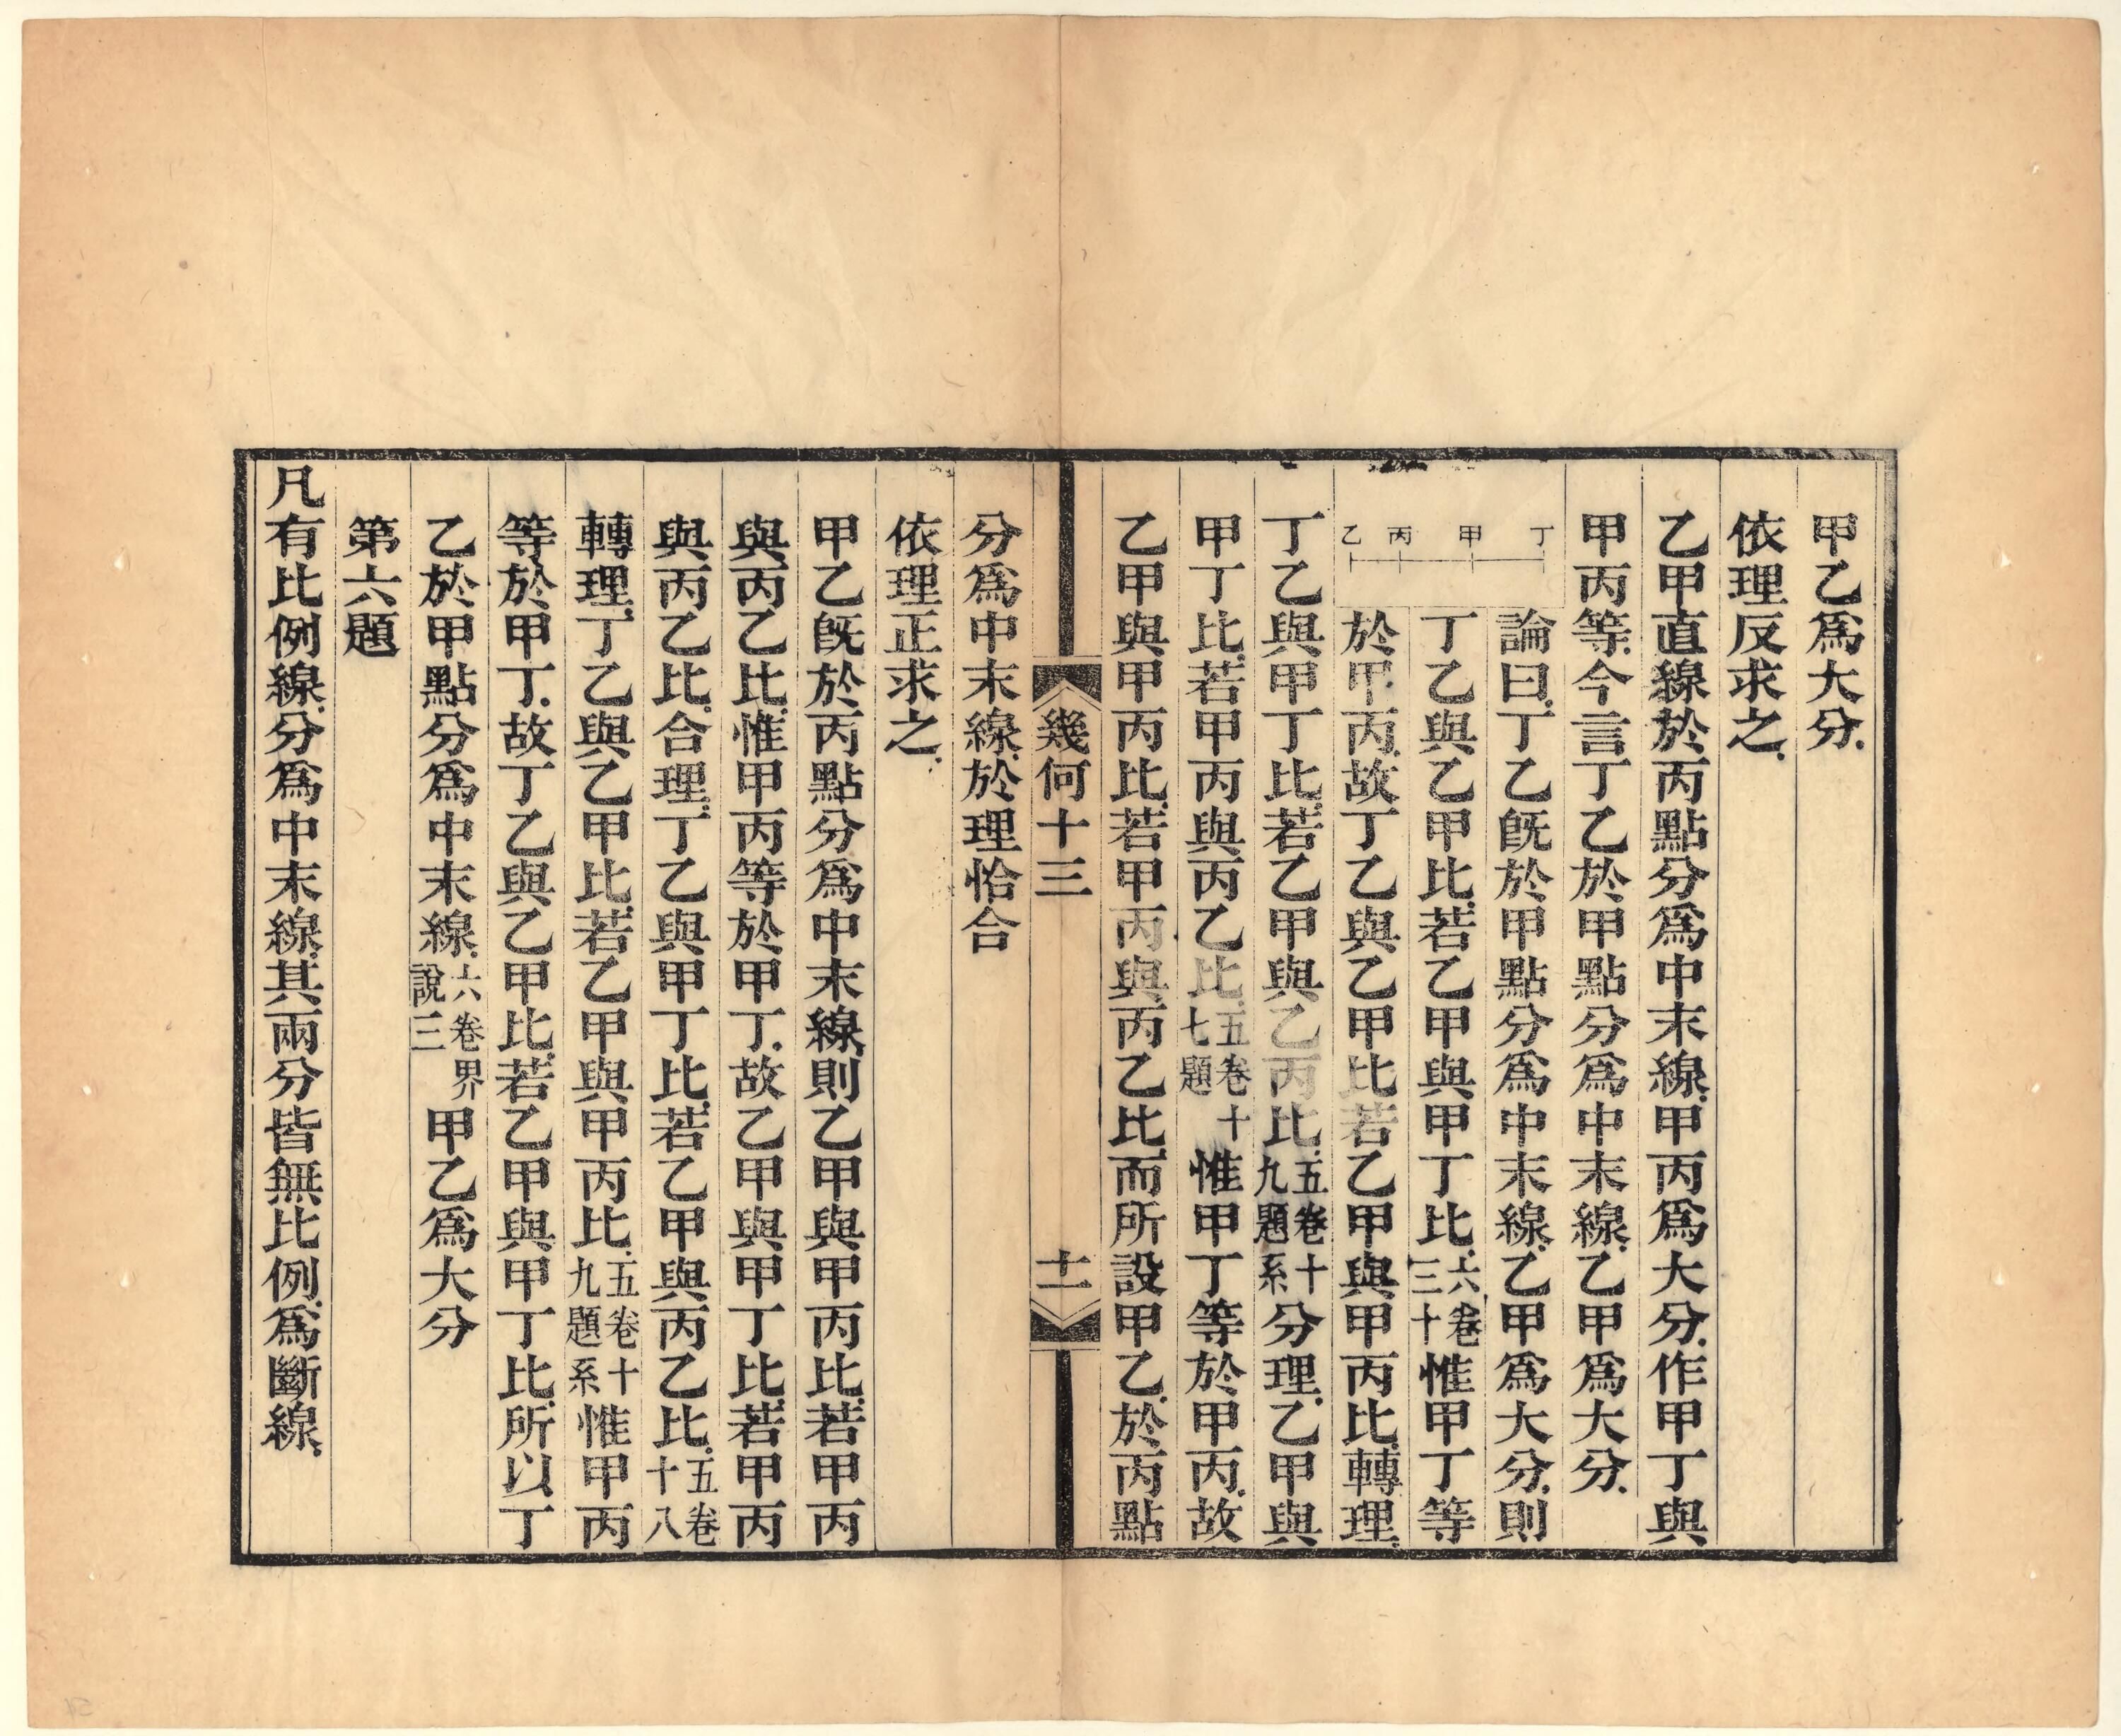 甲乙爲大分.
依理反求之.
乙甲直線於丙點分爲中末線.甲丙爲大分.作甲丁與
甲丙等.今言丁乙於甲點分爲中末線.乙甲爲大分.
乙 丙 甲 丁
論曰.丁乙旣於甲點分爲中末線.乙甲爲大分.則
丁乙與乙甲比.若乙甲與甲丁比.六卷三十惟甲丁等
於甲丙.故丁乙與乙甲比若乙甲與甲丙比.轉理.
丁乙與甲丁比.若乙甲與乙丙比.五卷十九題系分理.乙甲與
甲丁比.若甲丙與丙乙比.五卷十七題惟甲丁等於甲丙.故
乙甲與甲丙比.若甲丙與丙乙比.而所設甲乙.於丙點
幾何十三 十一
分爲中末線.於理恰合
依理正求之.
甲乙旣於丙點分爲中末線.則乙甲與甲丙比.若甲丙
與丙乙比.惟甲丙等於甲丁.故乙甲與甲丁比.若甲丙
與丙乙比.合理.丁乙與甲丁比.若乙甲與丙乙比.五卷十八
轉理.丁乙與乙甲比.若乙甲與甲丙比.五卷十九題系惟甲丙
等於甲丁.故丁乙與乙甲比.若乙甲與甲丁比.所以丁
乙於甲點分爲中末線.六卷界說三甲乙爲大分
第六題
凡有比例線.分爲中末線.其兩分皆無比例.爲斷線.